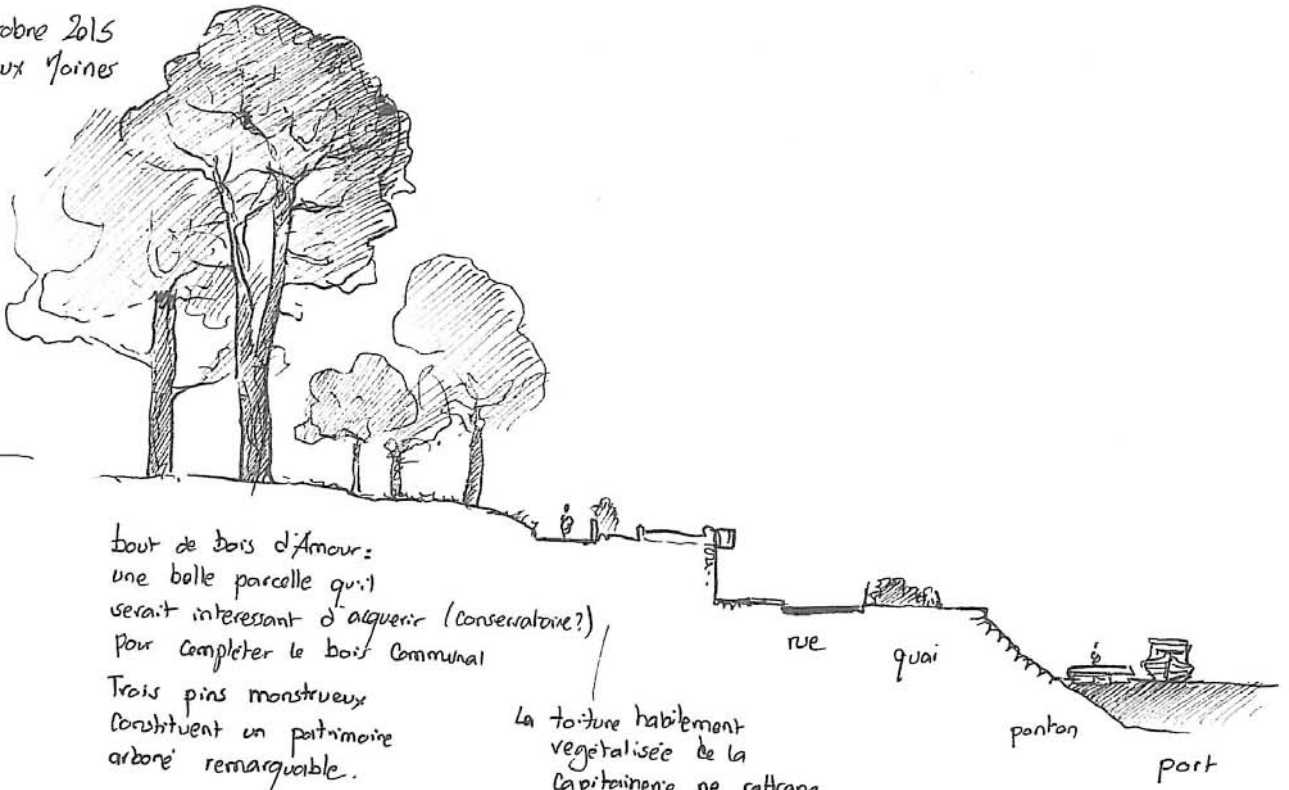 obre 2015
ux Moines
bout de bois d'Amour:
une belle parcelle qu'il
serait interessant d'acquerir (conservatoire?)
pour compléter le bois Communal
Trois pins monstrueux
Constituent un patrimoine
arboré remarquable.
La toiture habilement
vegétalisée de la
Capitainerie ne rattrape
rue
quai
ponton
port